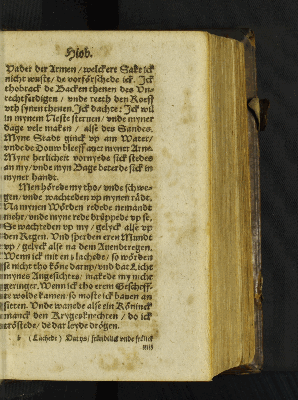 Hiob.
Vader der Armen / welckere Sake ick
nicht wuste / de vorförschede ick. Jck
thobrack de Backen thenen des Vn-
rechtferdigen / vnde reeth den Roeff
vth synen thenen. Jck dachte: Jck wil
in mynem Neste steruen / vnde myner
dage vele maken / alse des Sandes.
Myne Stadt ginck vp am Water /
vnde de Douw bleeff auer myner Arne.
Myne herlicheit vornyede sick stedes
an my / vnde myn Bage beterde sick in
myner handt.
Men hörede my tho / vnde schwe-
gen / vnde wachteden vp mynen rädt.
Na mynen Wörden redede nemandt
mehr / vnde myne rede drüppede vp se.
Se wachteden vp my / gelyck alse vp
den Regen. Vnd sperden eren Mundt
vp / gelyck alse na dem Auendtregen.
Wenn ick mit en lachede / so worden
se nicht tho köne darup / vnd dat Licht
mynes Angesichtes / makede my nicht
geringer. Wenn ick tho erem Gescheff-
te wolde kamen / so moste ick bauen an
sitten. Vnde wanede alse ein Köninck
manck den Krygesknechten / do ick
tröstede / de dar leyde drögen.
(Lachede)